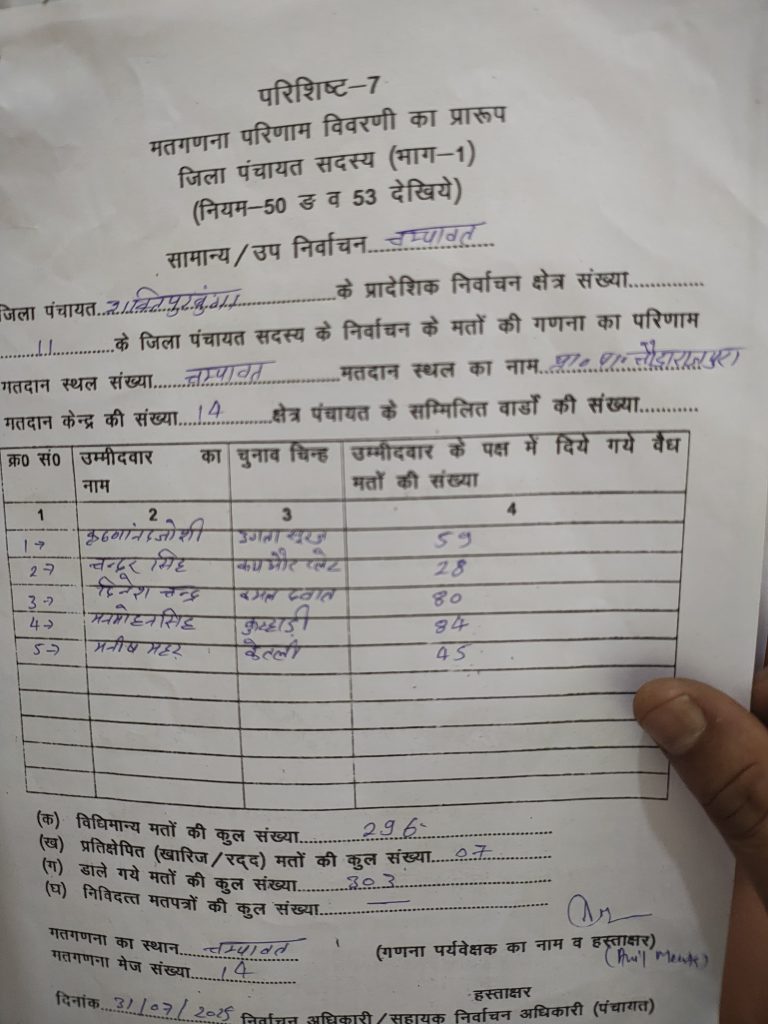 परिशिष्ट–7
मतगणना परिणाम विवरणी का प्रारूप
जिला पंचायत सदस्य (भाग–1)
(नियम–50 ङ व 53 देखिये)
सामान्य/उप निर्वाचन...चम्पावत...
जिला पंचायत...शक्तिपुरबुंगा...के प्रादेशिक निर्वाचन क्षेत्र संख्या...
...11...के जिला पंचायत सदस्य के निर्वाचन के मतों की गणना का परिणाम
मतदान स्थल संख्या...चम्पावत...मतदान स्थल का नाम...
मतदान केन्द्र की संख्या...14...क्षेत्र पंचायत के सम्मिलित वार्डों की संख्या...
क्र0 सं0 उम्मीदवार का नाम चुनाव चिन्ह उम्मीदवार के पक्ष में दिये गये वैध मतों की संख्या
1 2 3 4
1→ जोशी उगता सूरज 59
2→ सिंह कप और प्लेट 28
3→ दिनेश चन्द्र कलम दवात 80
4→ मनमोहन सिंह कुल्हाड़ी 84
5→ मनीष महर केतली 45
(क) विधिमान्य मतों की कुल संख्या...296
(ख) प्रतिक्षेपित (खारिज/रद्द) मतों की कुल संख्या...07
(ग) डाले गये मतों की कुल संख्या...303
(घ) निविदत्त मतपत्रों की कुल संख्या...—
गतगणना का स्थान...चम्पावत
(गणना पर्यवेक्षक का नाम व हस्ताक्षर)
गतगणना मेज संख्या...14
हस्ताक्षर
दिनांक...31/07/2025 निर्वाचन अधिकारी/सहायक निर्वाचन अधिकारी (पंचायत)